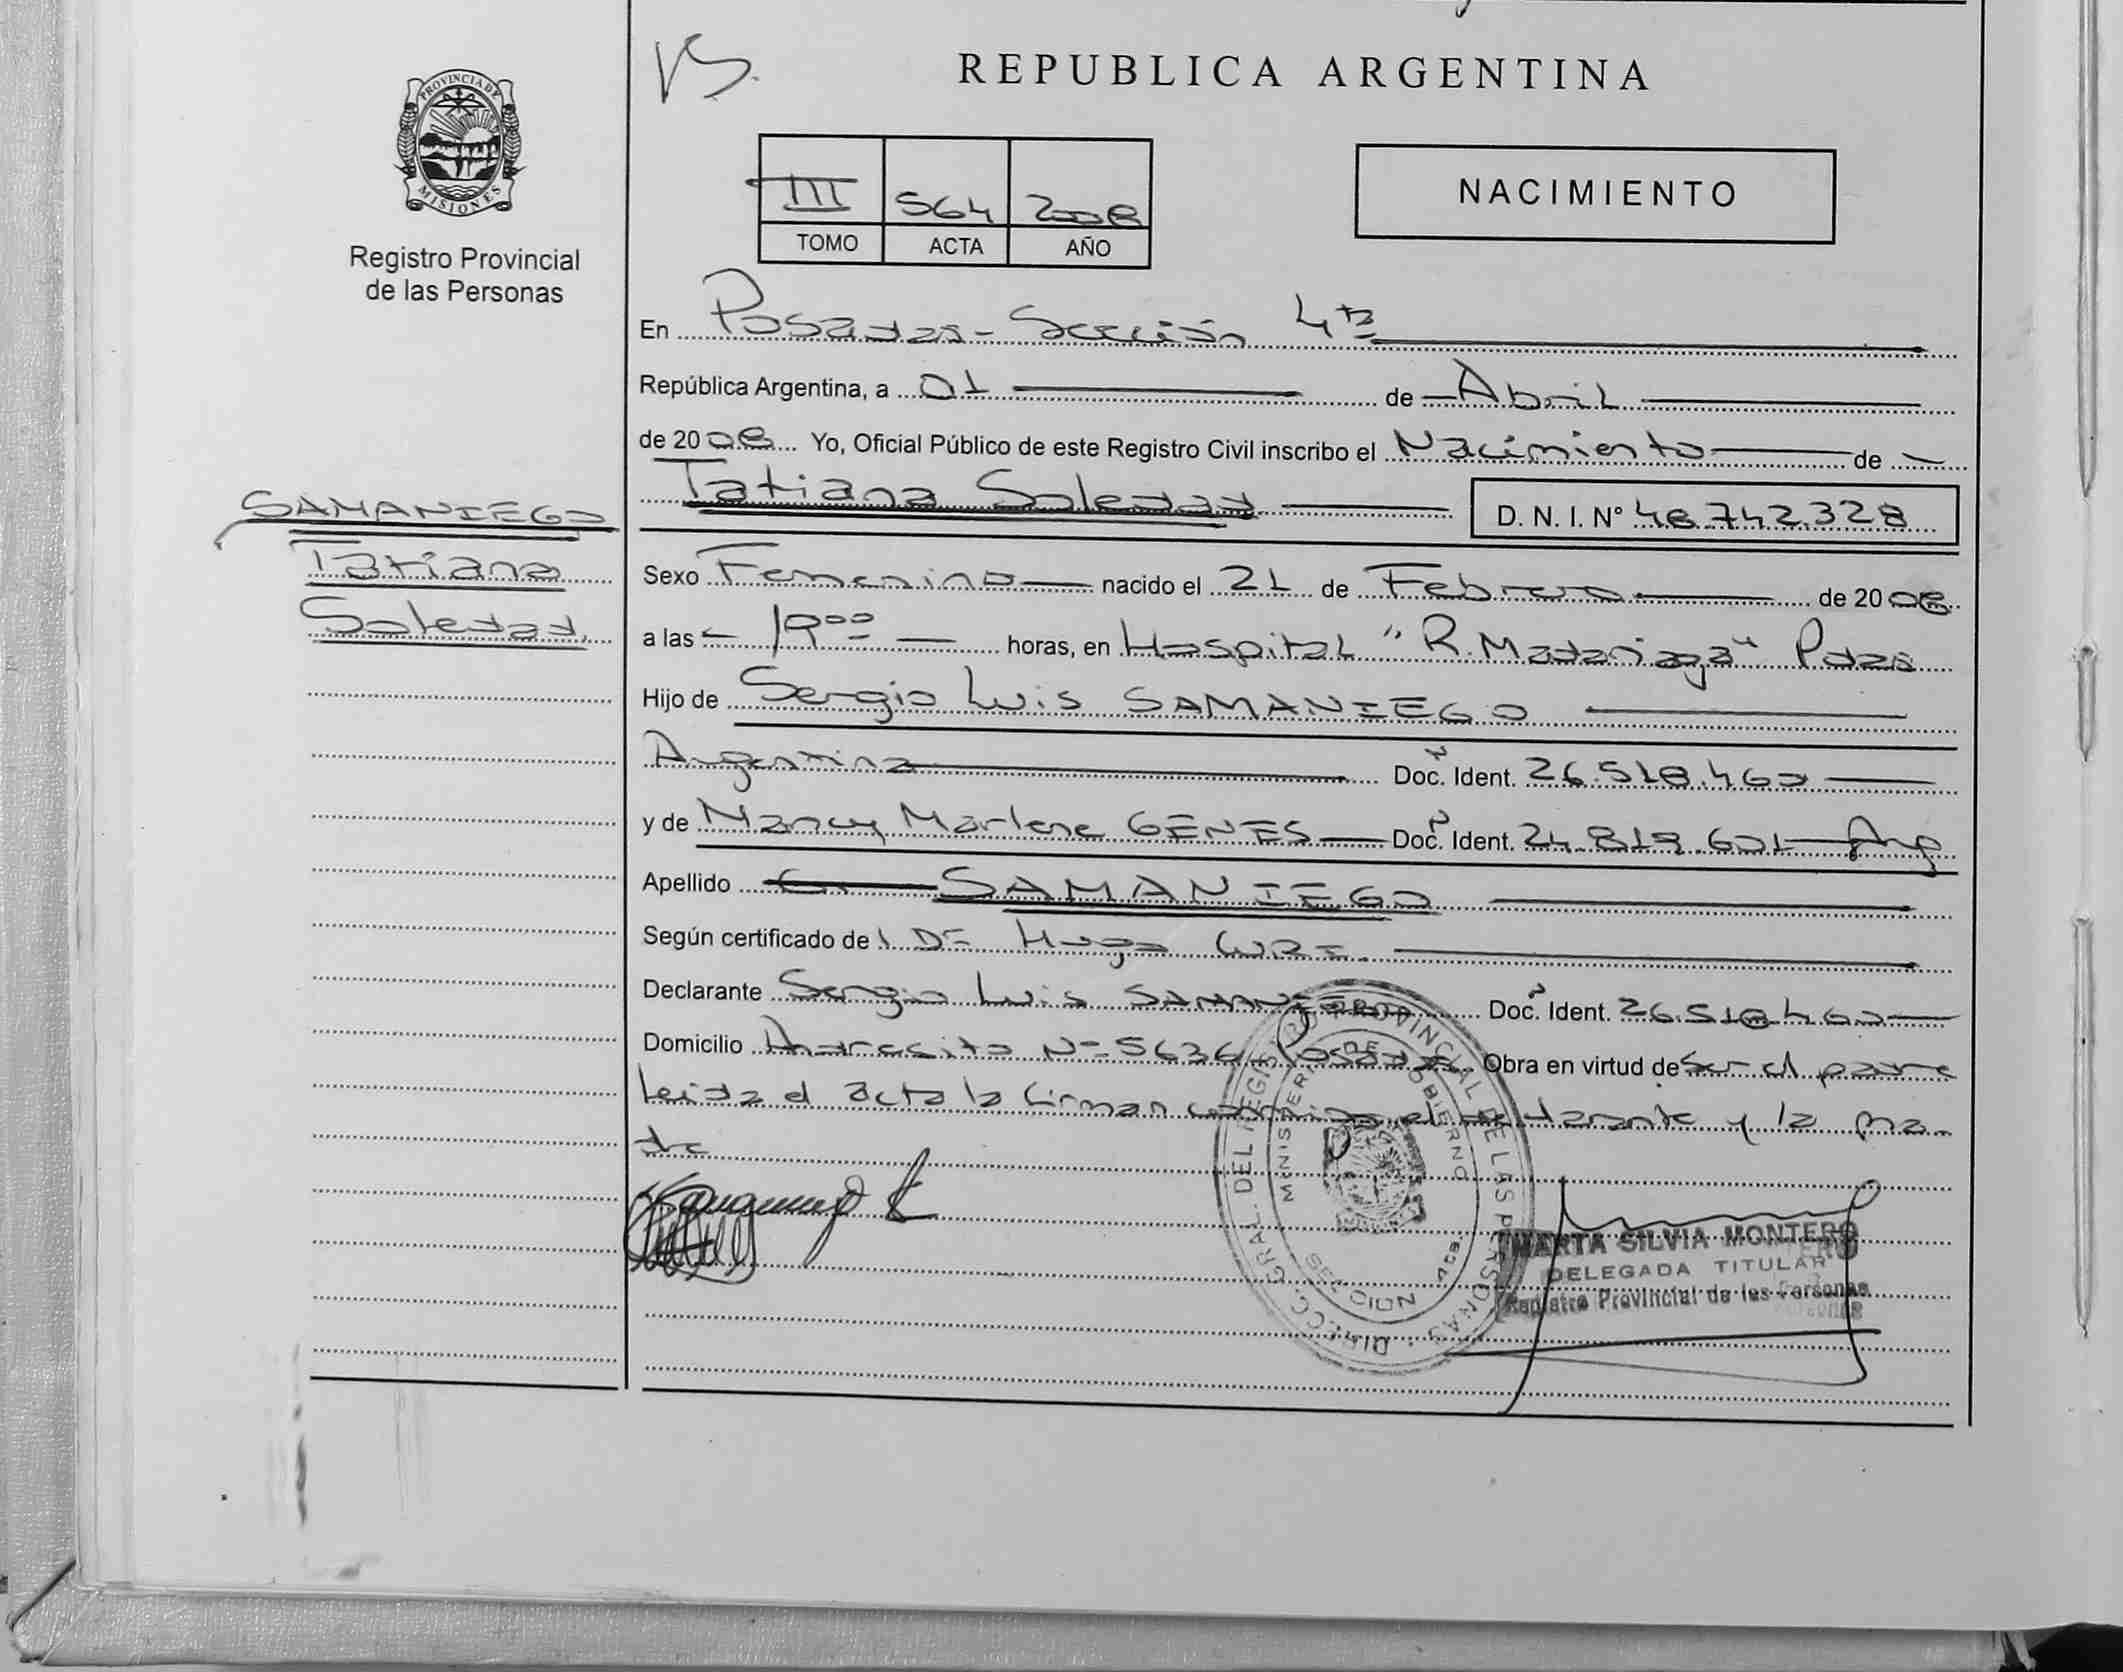 PROVINCIA DE
MISIONES
Registro Provincial
de las Personas
VS.
REPUBLICA ARGENTINA
III 564 2008
TOMO ACTA AÑO
NACIMIENTO
En Posadas - Sección 4ta
República Argentina, a 01 de Abril
de 2008 Yo, Oficial Público de este Registro Civil inscribo el Nacimiento de
Tatiana Soledad D. N. I. N° 48.742.328
SAMANIEGO
Tatiana
Soledad.
Sexo Femenino nacido el 21 de Febrero de 2008
a las 19 00 horas, en Hospital "R. Madariaga" Pdas
Hijo de Sergio Luis SAMANIEGO
Argentina Doc. Ident. 26.518.460
y de Nancy Marlene GENES Doc. Ident. 24.819.601 Arg
Apellido SAMANIEGO
Según certificado de Hugo
Declarante Sergio Luis SAMANIEGO Doc. Ident. 26.518.460
Domicilio Andresito Nº 5636 Posadas Obra en virtud de ser el padre
leida el acta la firman conmigo el declarante y la ma-
dre
DIRECC. GRAL. DEL REGISTRO PROVINCIAL DE LAS PERSONAS
MINISTERIO DE GOBIERNO
SECCION 4ta
MARTA SILVIA MONTERO
DELEGADA TITULAR
Registro Provincial de las Personas